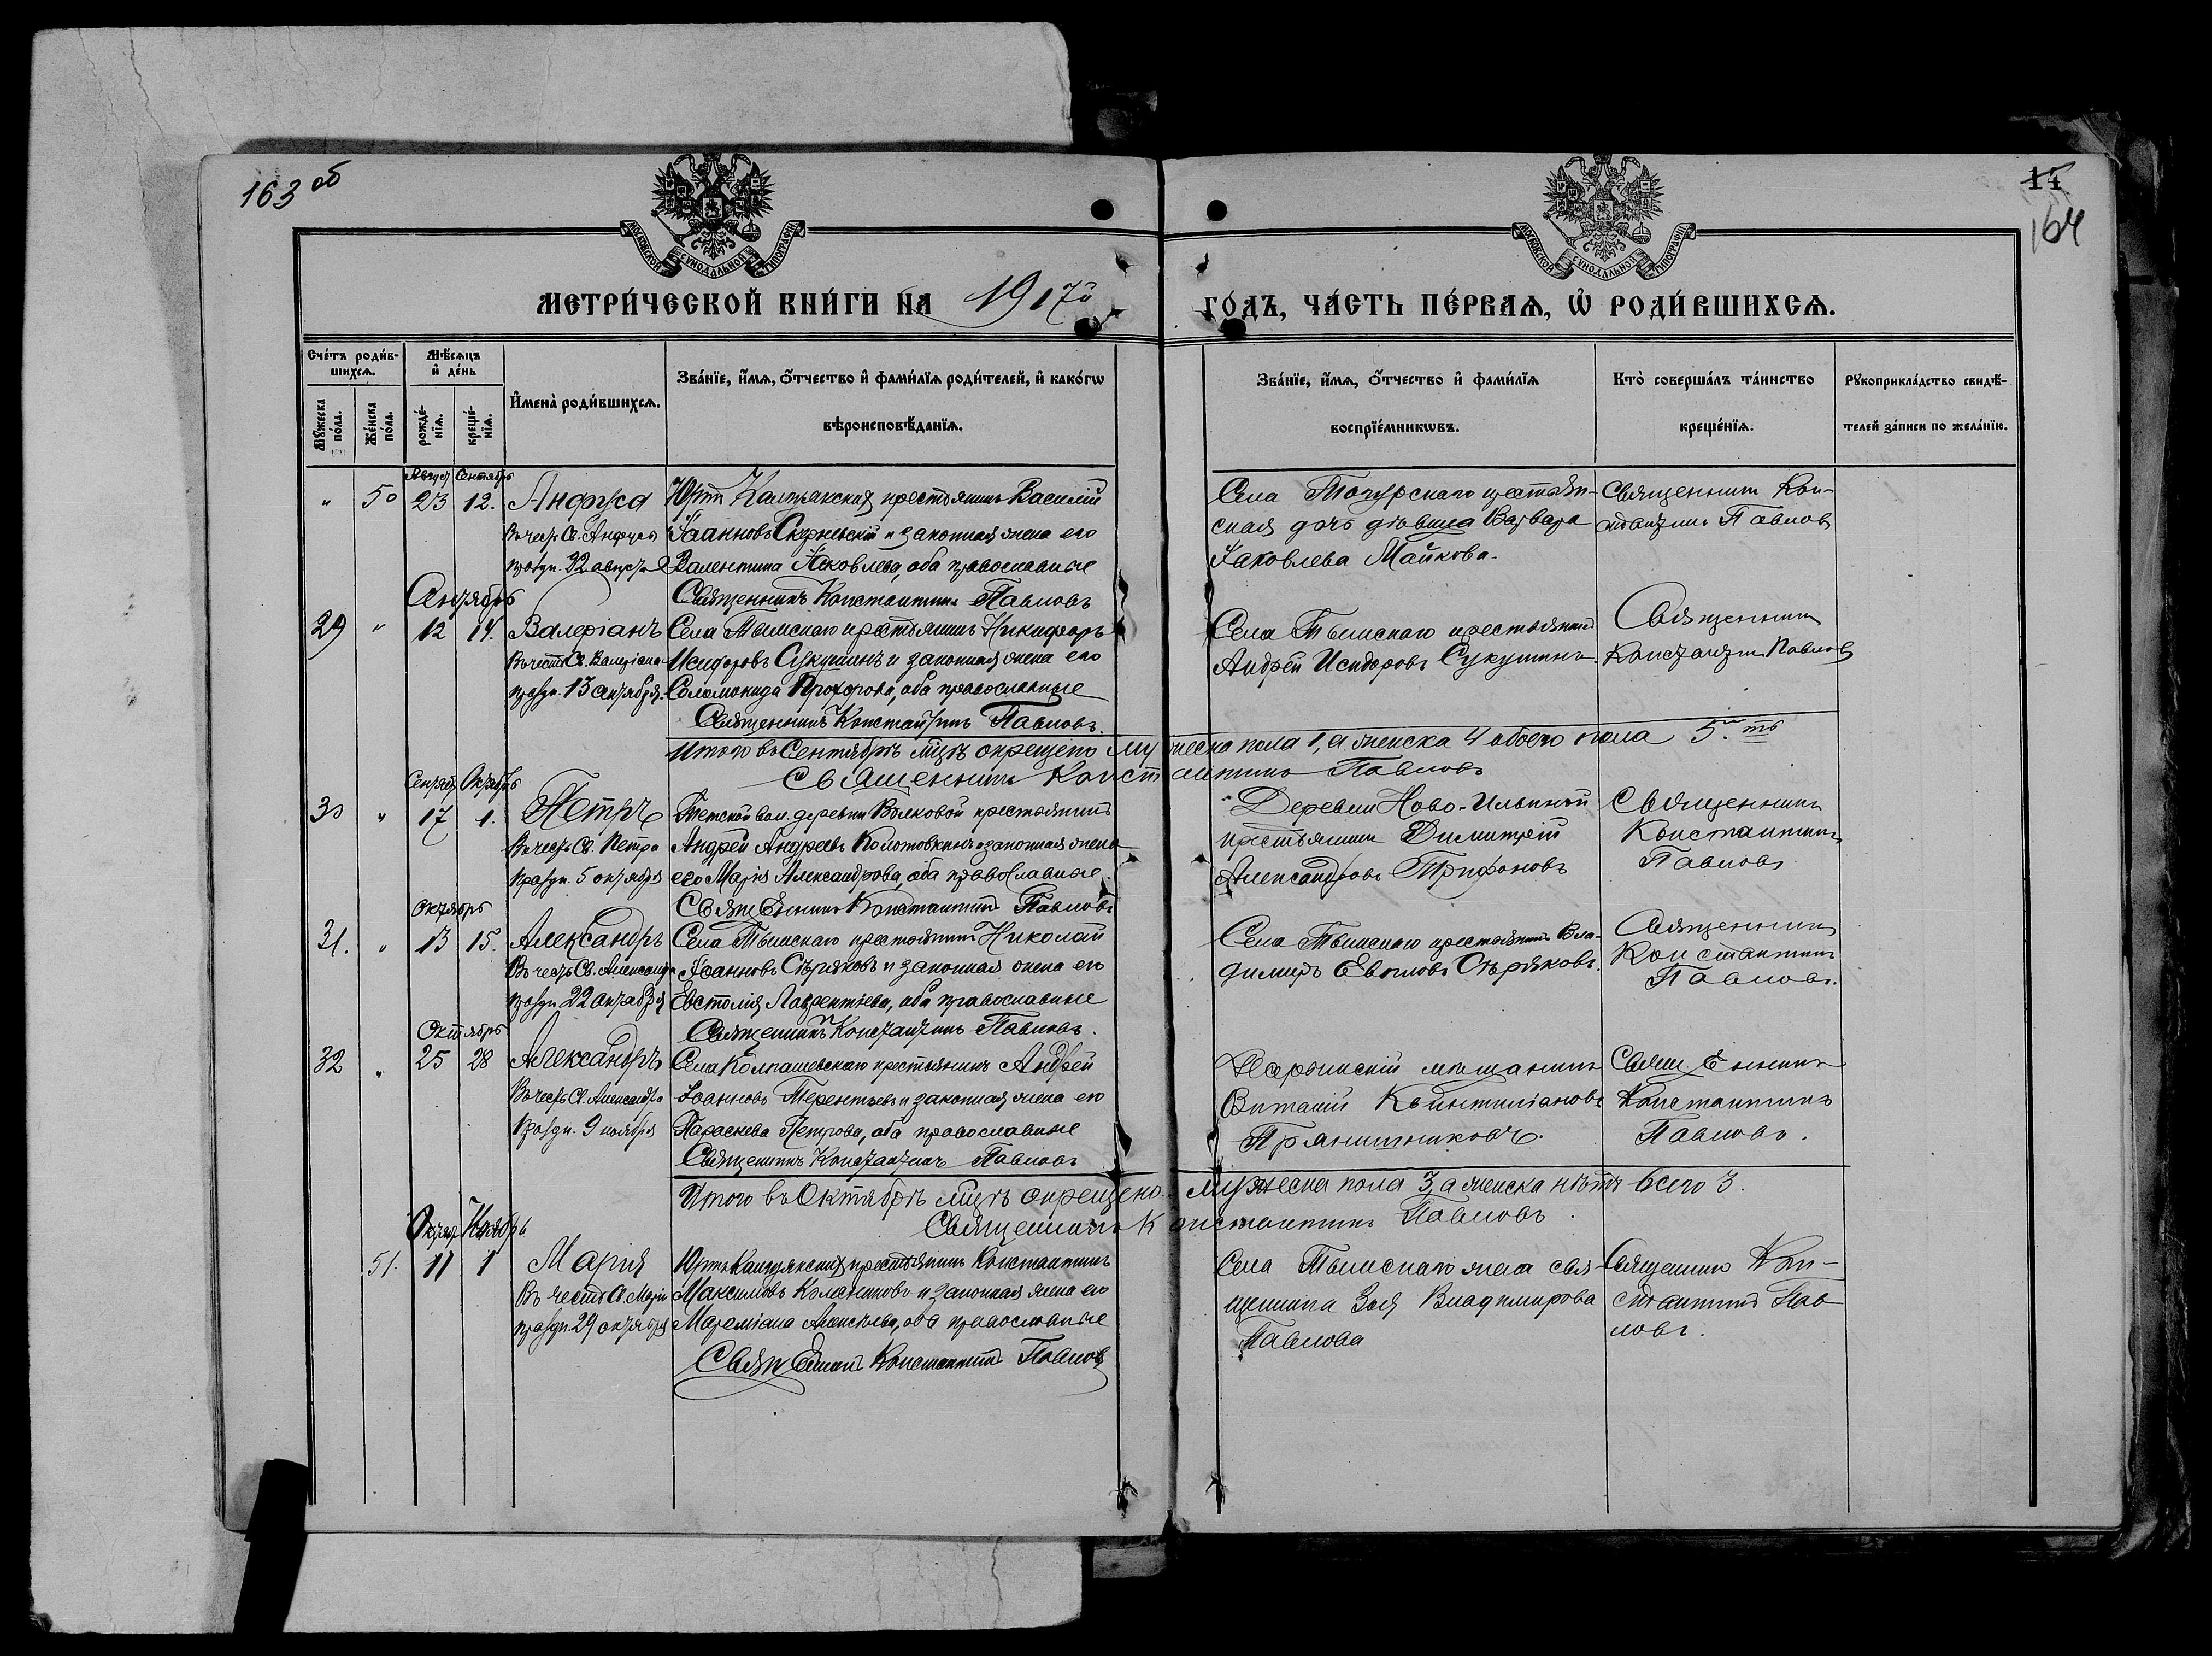 163 об
14
164
МОСКОВСКОЙ СУНОДАЛЬНОЙ ТИПОГРАФІИ
МОСКОВСКОЙ СУНОДАЛЬНОЙ ТИПОГРАФІИ
МЕТРИ́ЧЕСКОЙ КНИ́ГИ НА 1917й ГО́ДЪ, ЧА́СТЬ ПЕ́РВАѦ, Ѡ҆ РОДИ́ВШИХСѦ.
Сче́тъ роди́в-
шихсѧ.
Мѣ́сѧцъ
и҆ де́нь
Мꙋ́жеска по́ла.
Же́нска по́ла.
рожде́-
нїѧ.
креще́-
нїѧ.
И҆мена̀ роди́вшихсѧ.
Зва́нїе, и҆́мѧ, ѻ҆́тчество и҆ фами́лїѧ роди́телей, и҆ како́гѡ
вѣроисповѣ́данїѧ.
Зва́нїе, и҆́мѧ, ѻ҆́тчество и҆ фами́лїѧ
воспрїе́мникѡвъ.
Кто̀ соверша́лъ та́инство
креще́нїѧ.
Рꙋкоприкла́дство свидѣ́-
телей за́писи по жела́нїю.
Август Сентябрь
" 50 23 12. Анфуса
Въ честь Св. Анфусы
праздн. 22 августа
Юртъ Калтракскихъ крестьянинъ Василій
Іоанновъ и законная жена его
Валентина Яковлева, оба православные
Священникъ Константинъ Павловъ
Села Тогурскаго крестьян-
ская дочь дѣвица Варвара
Іаковлева Майкова.
Священникъ Кон-
стантинъ Павлов
Сентябрь
29 " 12 14. Валеріанъ
Въ честь Св. Валеріана
праздн. 13 сентября.
Села Тымскаго крестьянинъ Никифоръ
Исидоровъ Сукушинъ и законная жена его
Соломонида Прохорова, оба православные
Священникъ Константинъ Павловъ.
Села Тымскаго крестьянинъ
Андрей Исидоровъ Сукушинъ.
Священникъ
Константинъ Павлов
Итого въ Сентябрѣ мцѣ окрещено мужеска пола 1, а женска 4 обоего пола 5.ть
Священникъ Константинъ Павловъ
Сентяб Октябрь
30 " 17 1. Петръ
Въ честь Св. Петра
праздн. 5 октября
Кетской вол. деревни Волковой крестьянинъ
Андрей Андреевъ Колотовкинъ и законная жена
его Марія Александрова, оба православные.
Священникъ Константинъ Павловъ
Деревни Ново-Ильиной
крестьянинъ Димитрій
Александровъ Трифоновъ
Священникъ
Константинъ
Павловъ
Октябрь
31. " 13 15. Александръ
Въ честь Св. Александра
праздн 22 октября
Села Тымскаго крестьянинъ Николай
Іоанновъ Сѣряковъ и законная жена его
Евстолія Лаврентіева, оба православные
Священникъ Константинъ Павловъ.
Села Тымскаго крестьянинъ Вла-
димиръ Евфимовъ Сѣряковъ.
Священникъ
Константинъ
Павловъ.
Октябрь
32 " 25 28 Александръ
Въ честь Св. Александра
праздн. 9 ноября
Села Колпашевскаго крестьянинъ Андрей
Іоанновъ Терентьевъ и законная жена его
Параскева Петрова, оба православные
Священникъ Константинъ Павловъ
мѣщанинъ
Виталій Квинтиліановъ
Прянишниковъ.
Священникъ
Константинъ
Павловъ.
Итого въ Октябрѣ мцѣ окрещено мужеска пола 3 а женска нѣтъ всего 3.
Священникъ Константинъ Павловъ.
Октяб Ноябрь
51. 11 1 Марія
Въ честь Св. Маріи
праздн 29 октября
Юртъ крестьянинъ Константинъ
Максимовъ и законная жена его
Мареміана Алексѣева, оба православные
Священникъ Константинъ Павлов
Села Тымскаго жена свя-
щенника Зоя Владимирова
Павлова
Священникъ Кон-
стантинъ Пав-
ловъ.